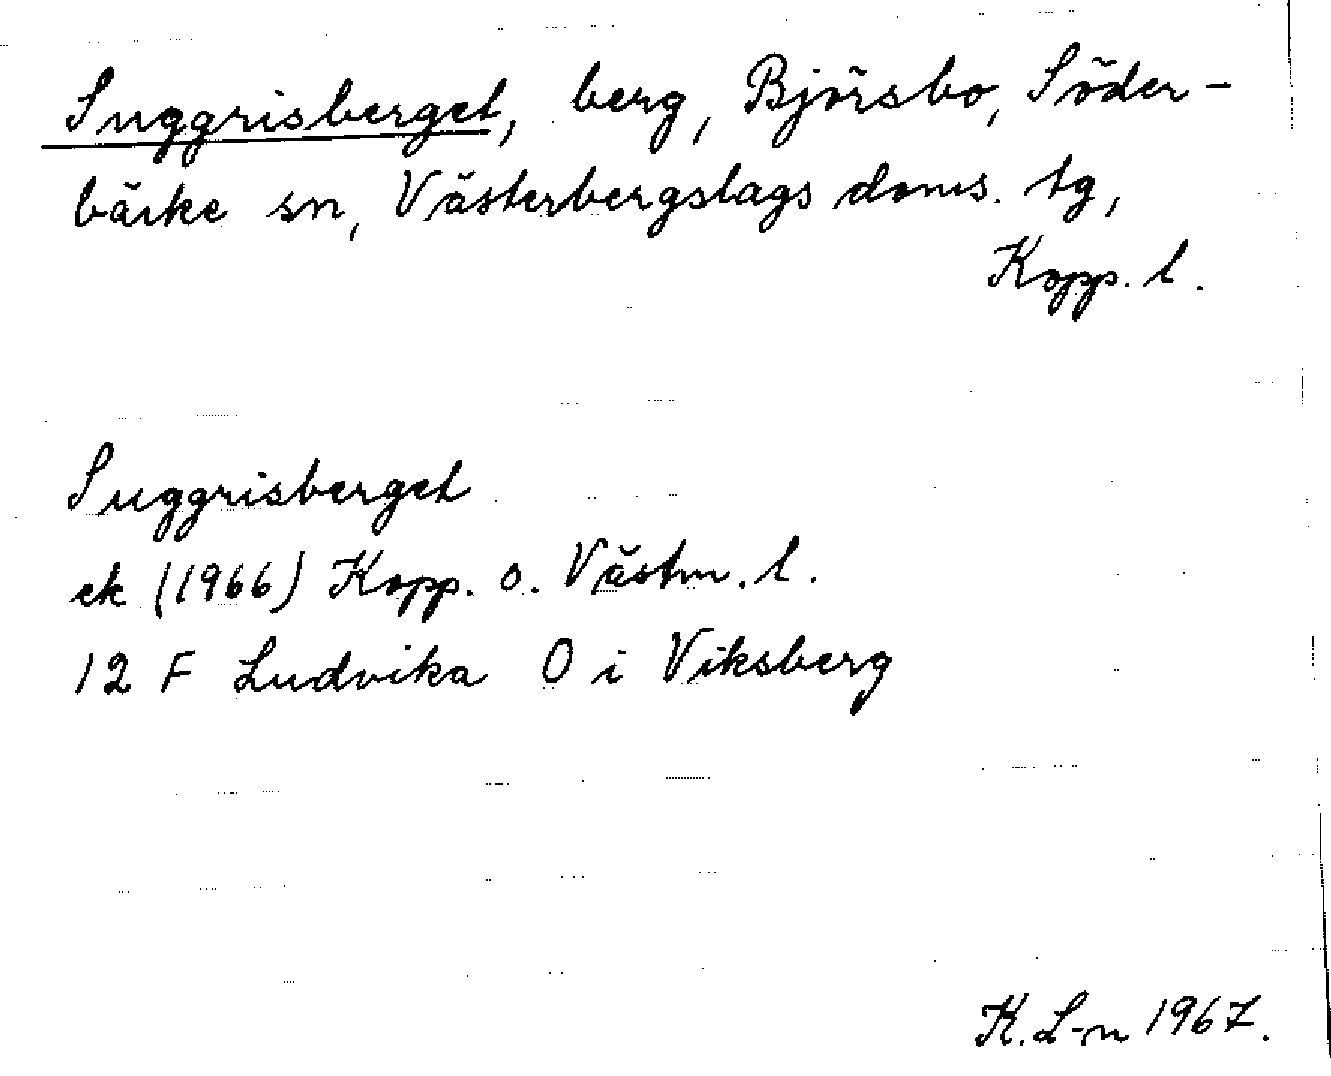 Suggrisberget, berg, Björsbo, Söder-
bärke sn, Västerbergslags doms. tg,
Kopp. l.
Suggrisberget
ek (1966) Kopp. o. Västm. l.
12 F Ludvika O i Viksberg
K. L-n 1967.